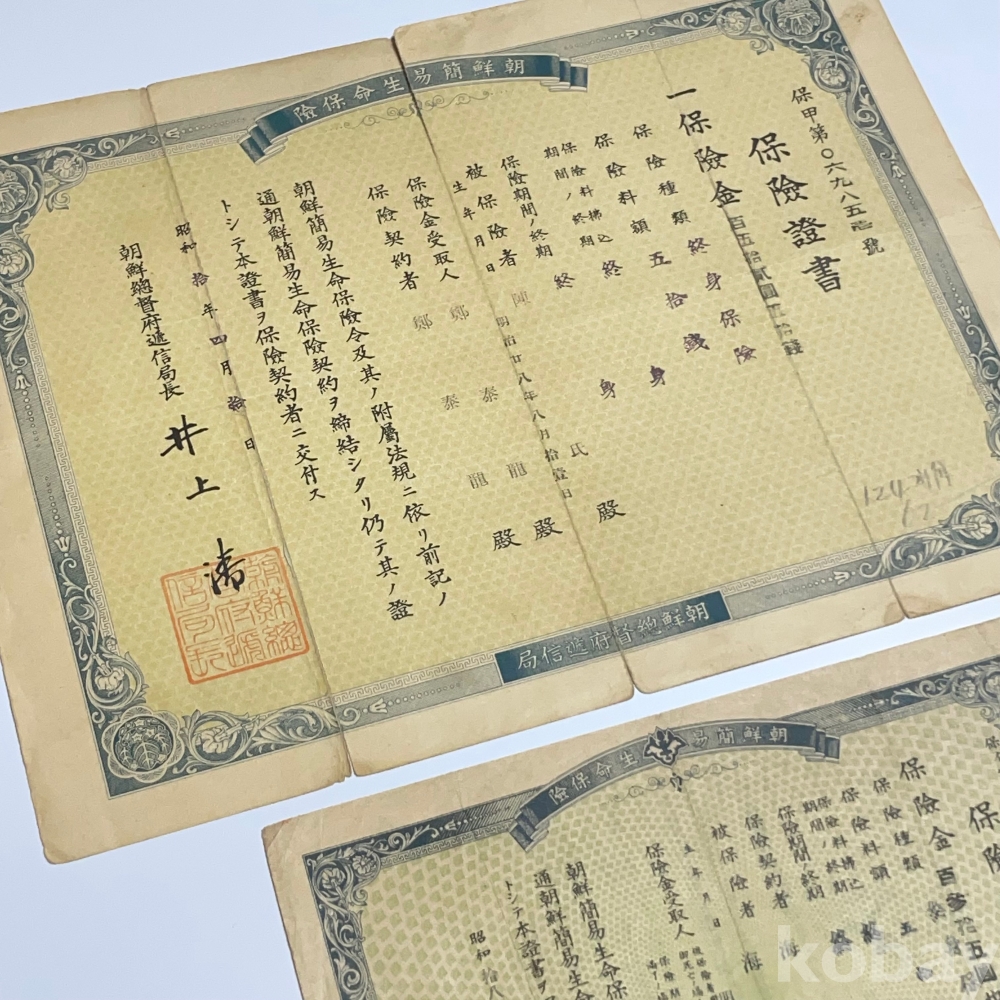 朝鮮簡易生命保險
保甲第〇六九八五壱號
保險證書
一保險金百五拾貳圓
保險種類終身保險
保險料額五拾錢
保險料拂込期間ノ終期終身
保險期間ノ終期終身
被保險者陳氏殿
生年月日明治廿八年八月拾壹日
保險金受取人鄭泰龍殿
保險契約者鄭泰龍殿
朝鮮簡易生命保險令及其ノ附屬法規ニ依リ前記ノ
通朝鮮簡易生命保險契約ヲ締結シタリ仍テ其ノ證
トシテ本證書ヲ保險契約者ニ交付ス
昭和拾年四月拾日
朝鮮總督府遞信局長井上清
朝鮮總督府遞信局
朝鮮簡易生命保險
保險
保險金百參拾五圓
保險種類
保險料額五
保險料拂込期間ノ終期終
保險期間ノ終期終
保險契約者海
被保險者海
生年月日
保險金受取人
朝鮮簡易生命保
通朝鮮簡易生命
トシテ本證書ヲ
昭和拾八
koba